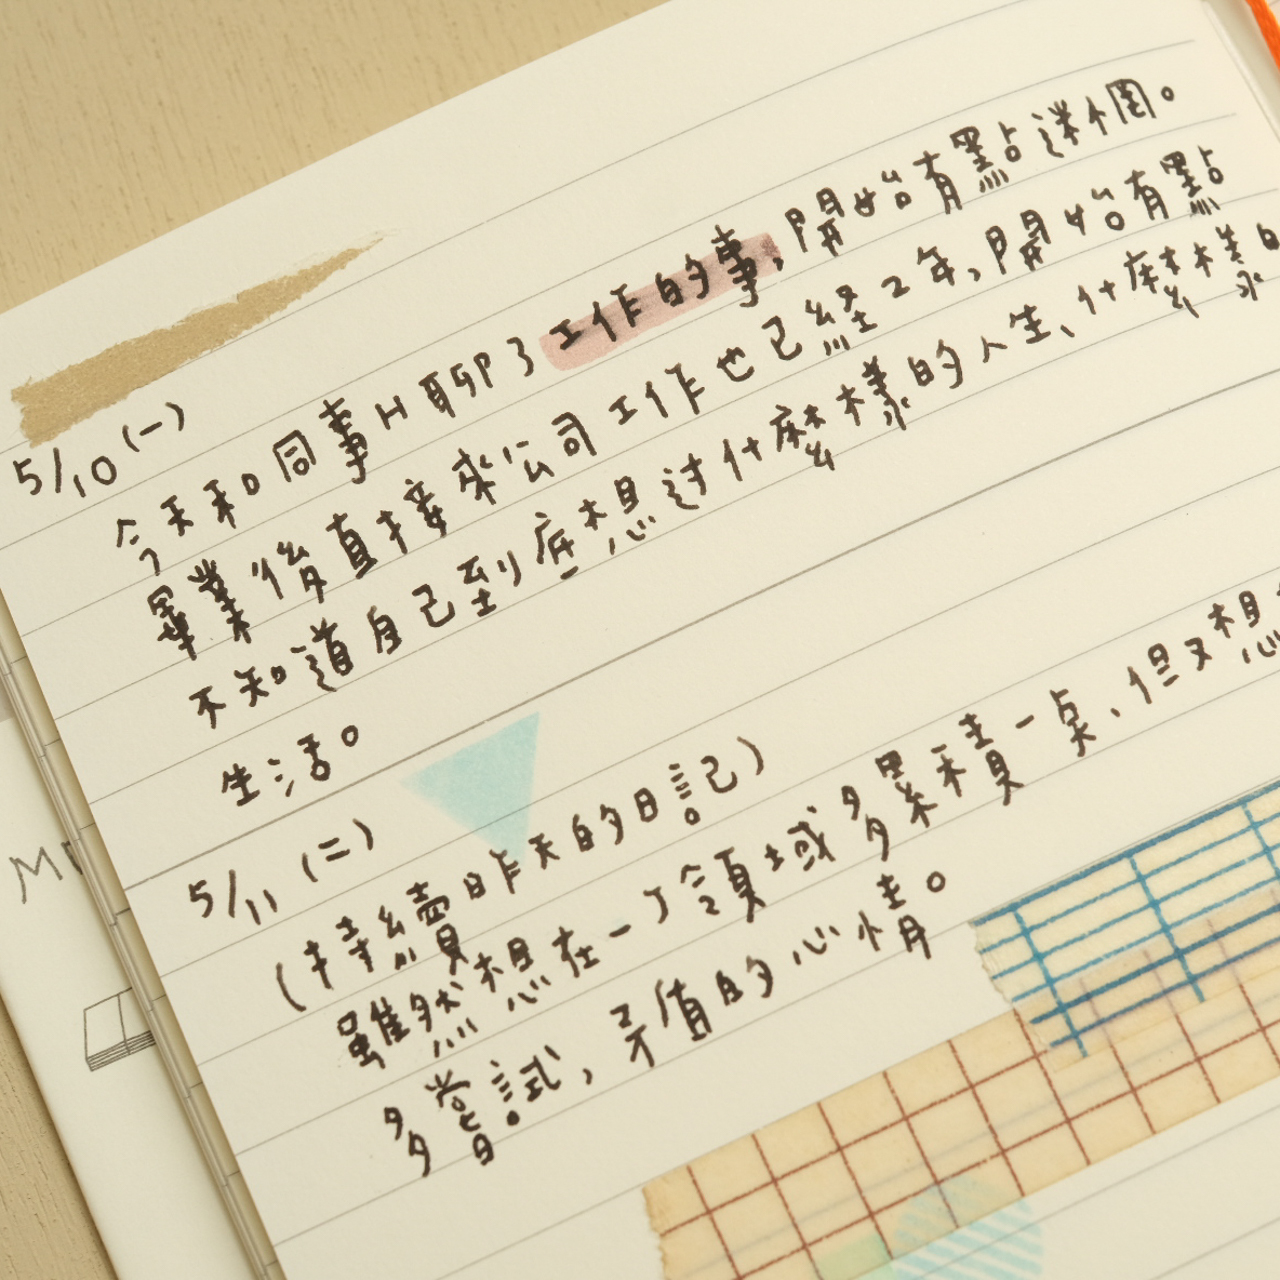 5/10 (一)
今天和同事H聊了工作的事,開始有點迷惘。
畢業後直接來公司工作也已經2年,開始有點
不知道自己到底想過什麼樣的人生、什麼樣的
生活。
5/11 (二)
(持續賣昨天的日記)
雖然想在一個領域多累積一點、但又想
多嘗試,矛盾的心情。